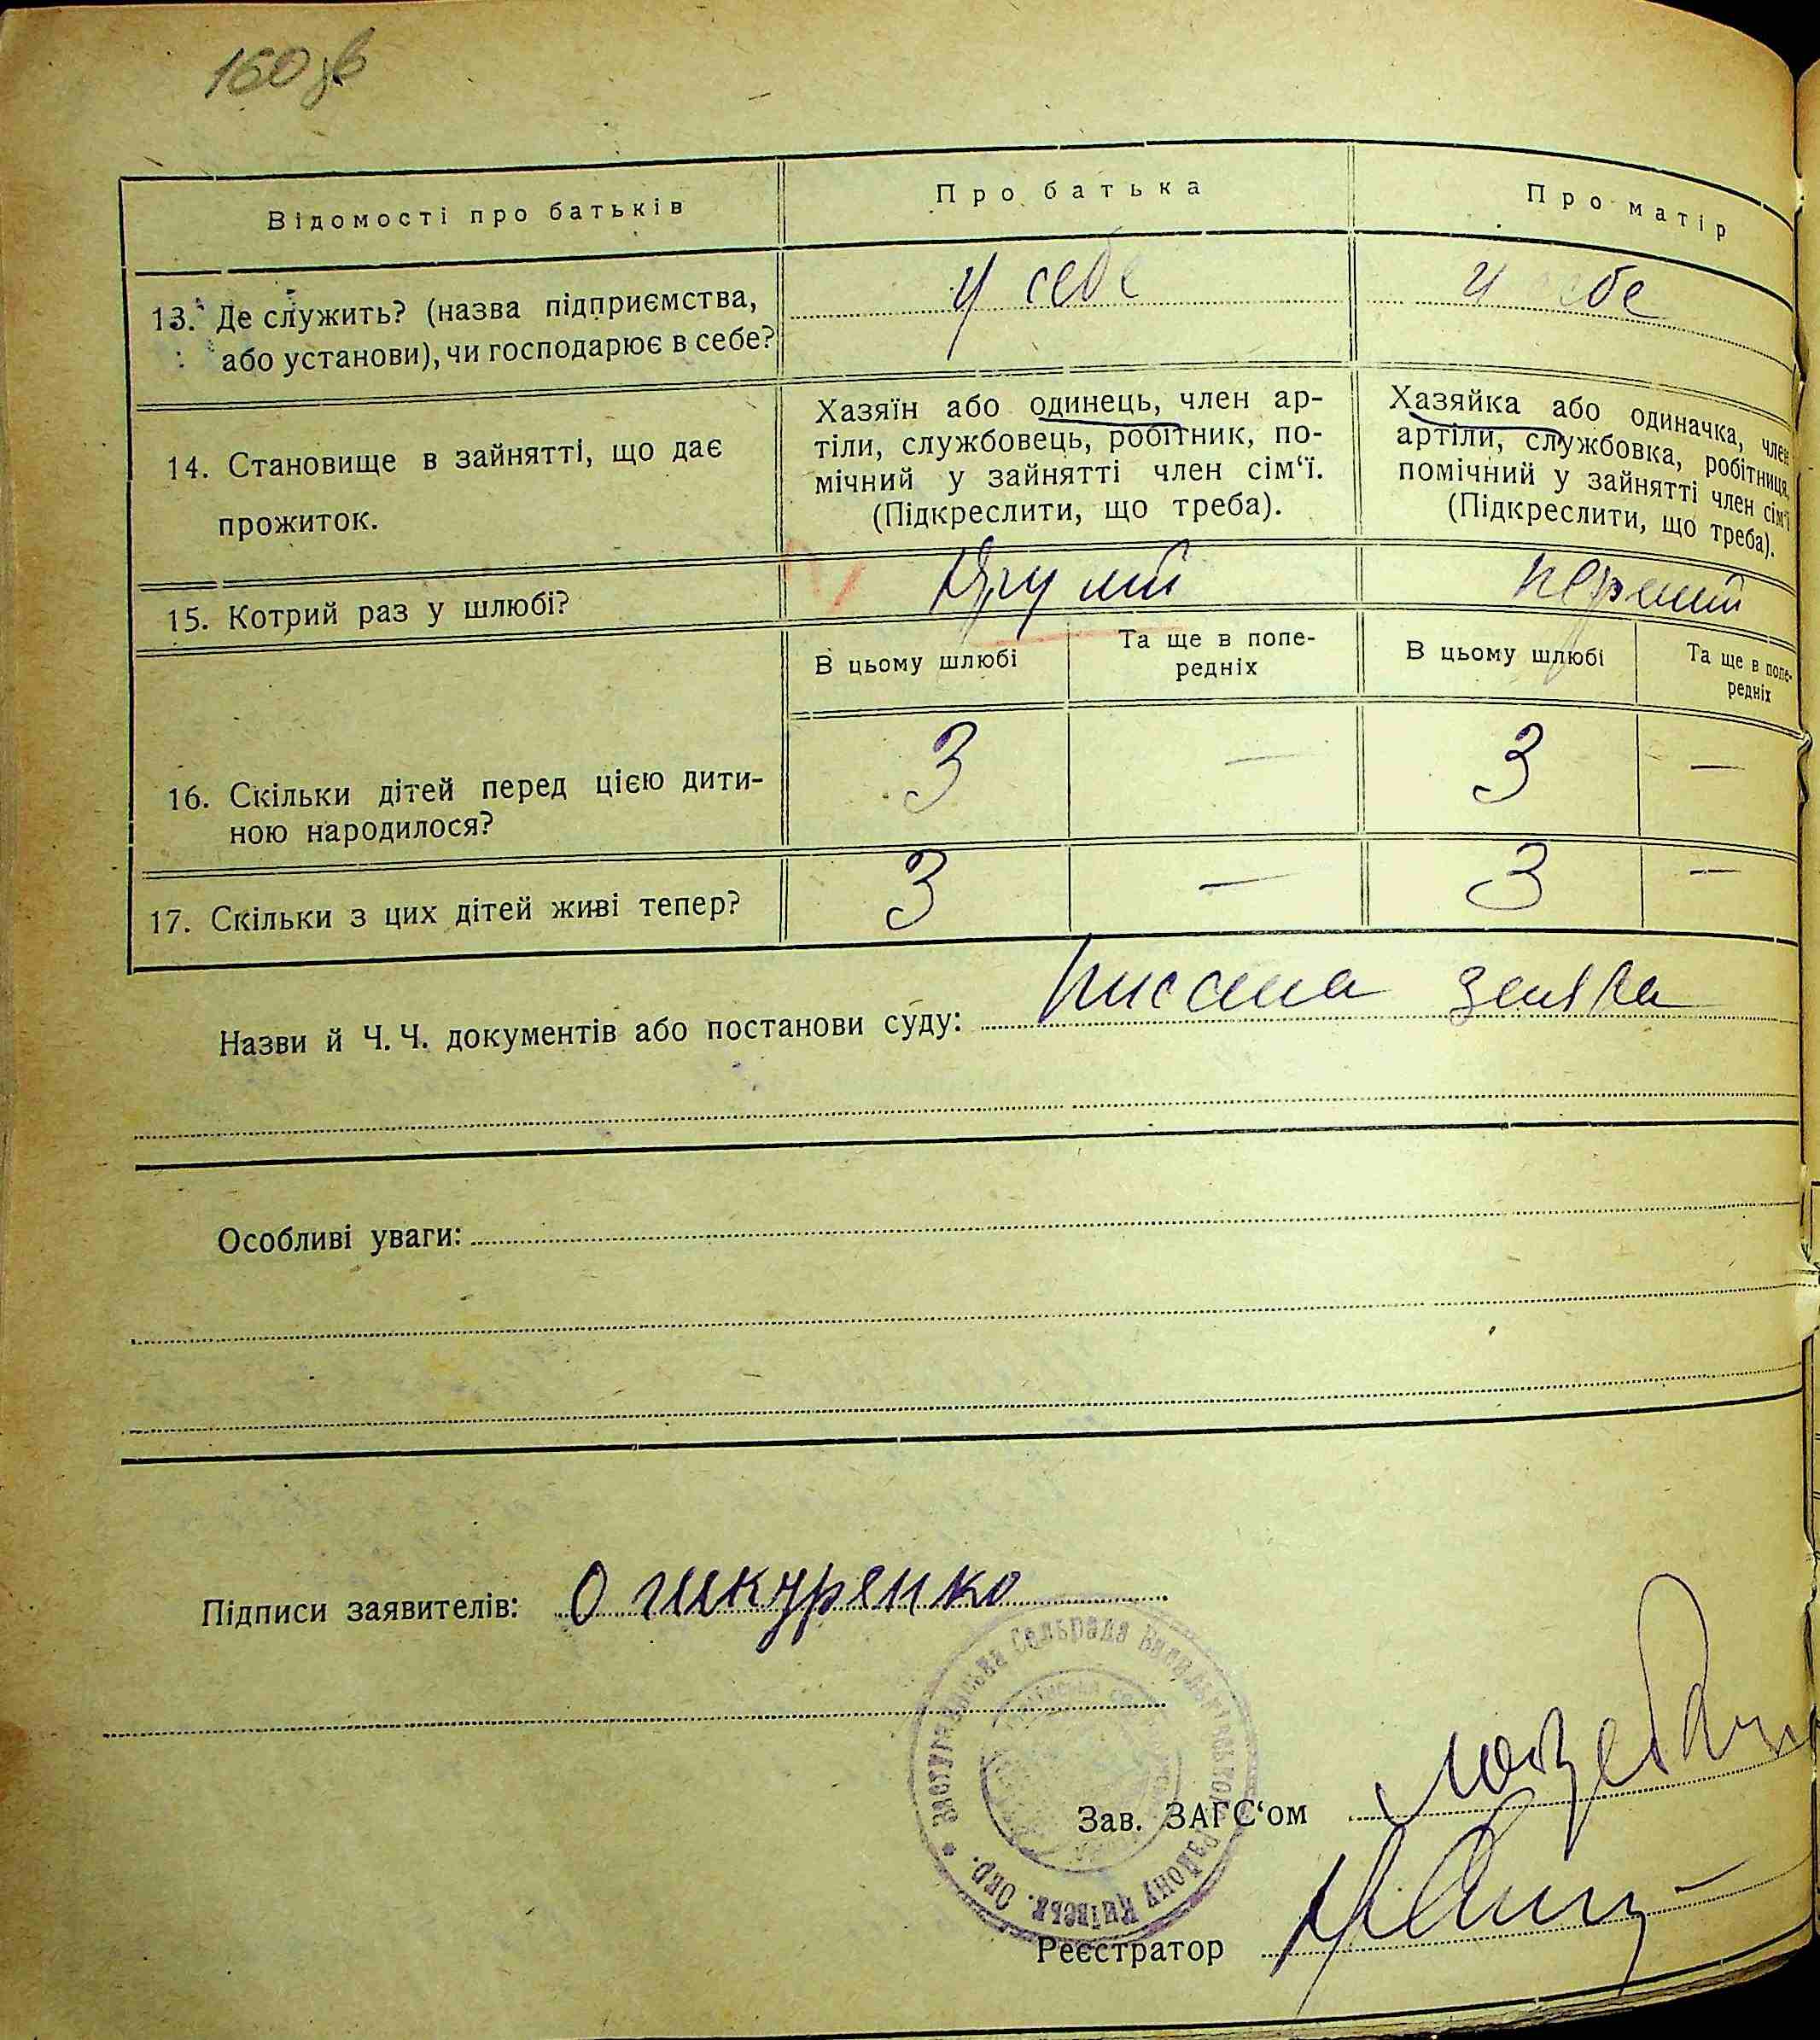 160 зв
Відомості про батьків
Про батька
Про матір
13. Де служить? (назва підприємства,
або установи), чи господарює в себе?
у себе
у себе
14. Становище в зайнятті, що дає
прожиток.
Хазяїн або одинець, член ар-
тіли, службовець, робітник, по-
мічний у зайнятті член сім‘ї.
(Підкреслити, що треба).
Хазяйка або одиначка, член
артіли, службовка, робітниця,
помічний у зайнятті член сім‘ї
(Підкреслити, що треба).
15. Котрий раз у шлюбі?
Другий
перший
В цьому шлюбі
Та ще в попе-
редніх
В цьому шлюбі
Та ще в попе-
редніх
16. Скільки дітей перед цією дити-
ною народилося?
3 — 3 —
17. Скільки з цих дітей живі тепер?
3 — 3 —
Назви й Ч. Ч. документів або постанови суду:
Особливі уваги:
Підписи заявителів: О Шкуренко
Сельрада
району Київськ. Окр.
Зав. ЗАГС‘ом
Реєстратор